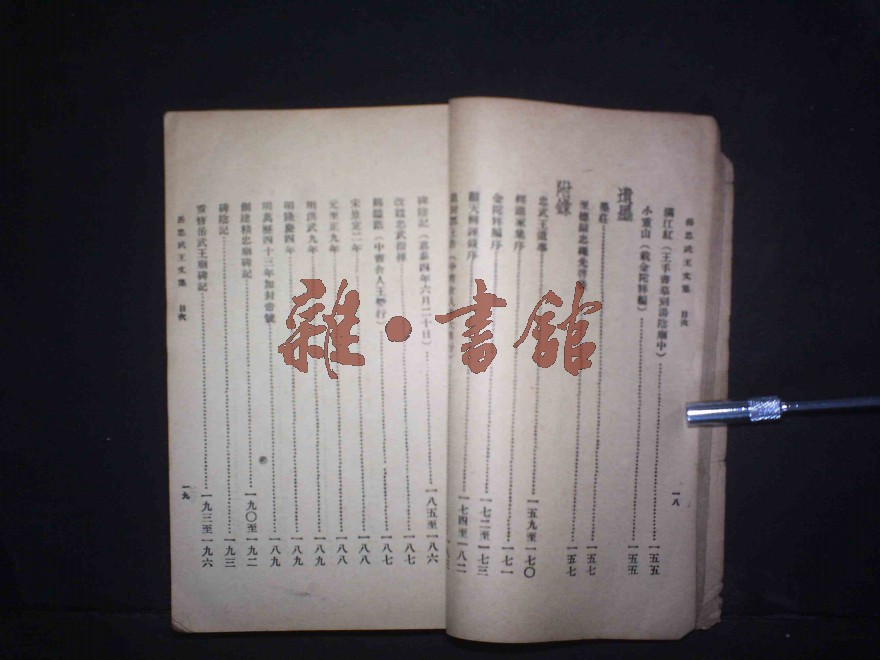 岳忠武王文集 目次
一八
遺墨
滿江紅（王手書墓刻湯陰廟中）一五五
小重山（載金陀稡編）一五五
墨莊一五七
至德顯忠繩先啓一五七
附錄
忠武王遺事一五九至一七〇
經進家集序一七一
金陀稡編序一七二至一七三
顯天辯誣錄序一七四至一八二
碑陰記（嘉泰四年六月二十日）一八五至一八六
改諡忠武指揮一八七
賜諡誥（中書舍人王塈行）一八七
宋景定二年一八八
元至正九年一八八
明洪武九年一八九
明隆慶四年一八九
明萬曆四十三年加封帝號一八九
創建精忠廟碑記一九〇至一九二
碑陰記一九三
重修岳武王廟碑記一九三至一九六
岳忠武王文集 目次
一九
雜·書館